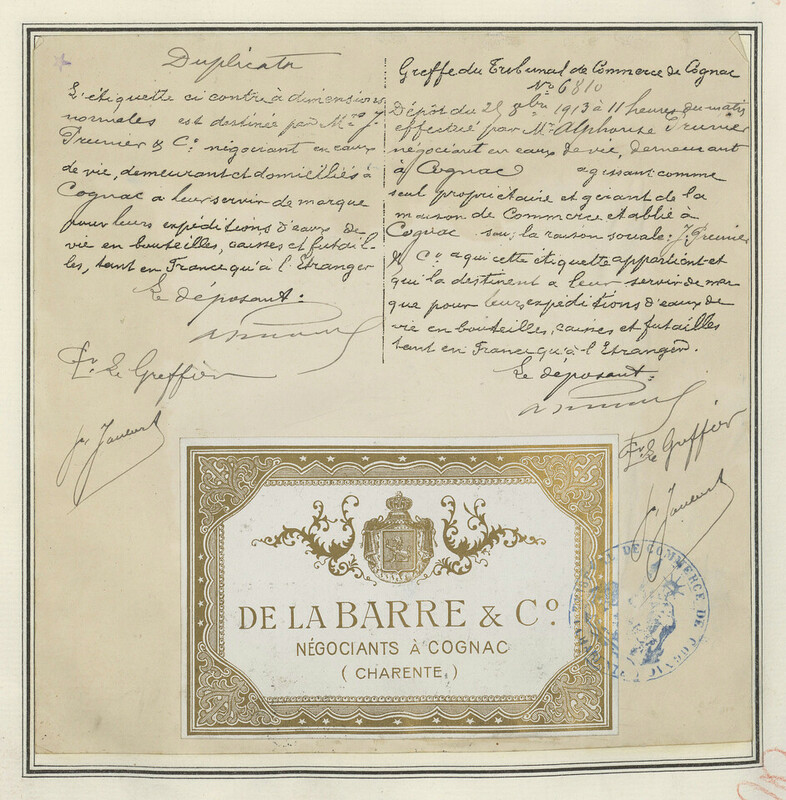 Duplicata
L'étiquette ci contre à dimensions
normales est destinée par Mrs J.
Prunier & Co négociant en eaux
de vie, demeurant et domiciliés à
Cognac a leur servir de marque
pour leurs expéditions d'eaux de
vie en bouteilles, caisses et futail-
les, tant en France qu'à l'Etranger
Le déposant:
Le Greffier
Greffe du Tribunal de Commerce de Cognac
No 6810
Dépôt du 25 9bre 1913 à 11 heures du matin
effectué par Mr Alphonse Prunier
négociant en eaux de vie, demeurant
à Cognac agissant comme
seul propriétaire et gérant de la
maison de Commerce etablie à
Cognac sous la raison sociale: J. Prunier
& Co a qui cette étiquette appartient et
qui la destinent a leur servir de mar-
que pour leurs expéditions d'eaux de
vie en bouteilles, caisses et futailles
tant en France qu'à l'Etranger.
Le déposant:
Le Greffier
DE LA BARRE & Co.
NÉGOCIANTS À COGNAC
(CHARENTE)
TRIBUNAL DE COMMERCE DE COGNAC